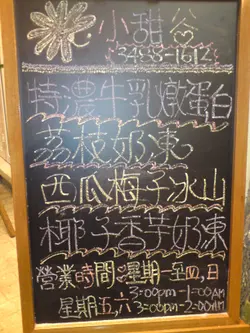 小甜谷
特濃牛乳燉蛋白
荔枝奶凍
西瓜梅子冰山
椰子香芋奶凍
營業時間:星期一至四,日
3:00pm-1:00AM
星期五,六 3:00pm-2:00AM